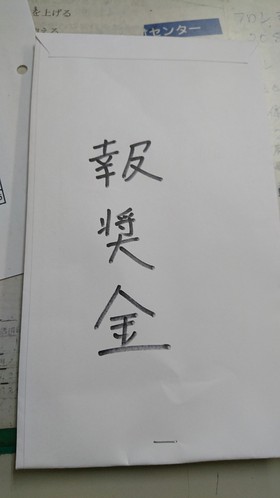 を上げる
センター
報奨金